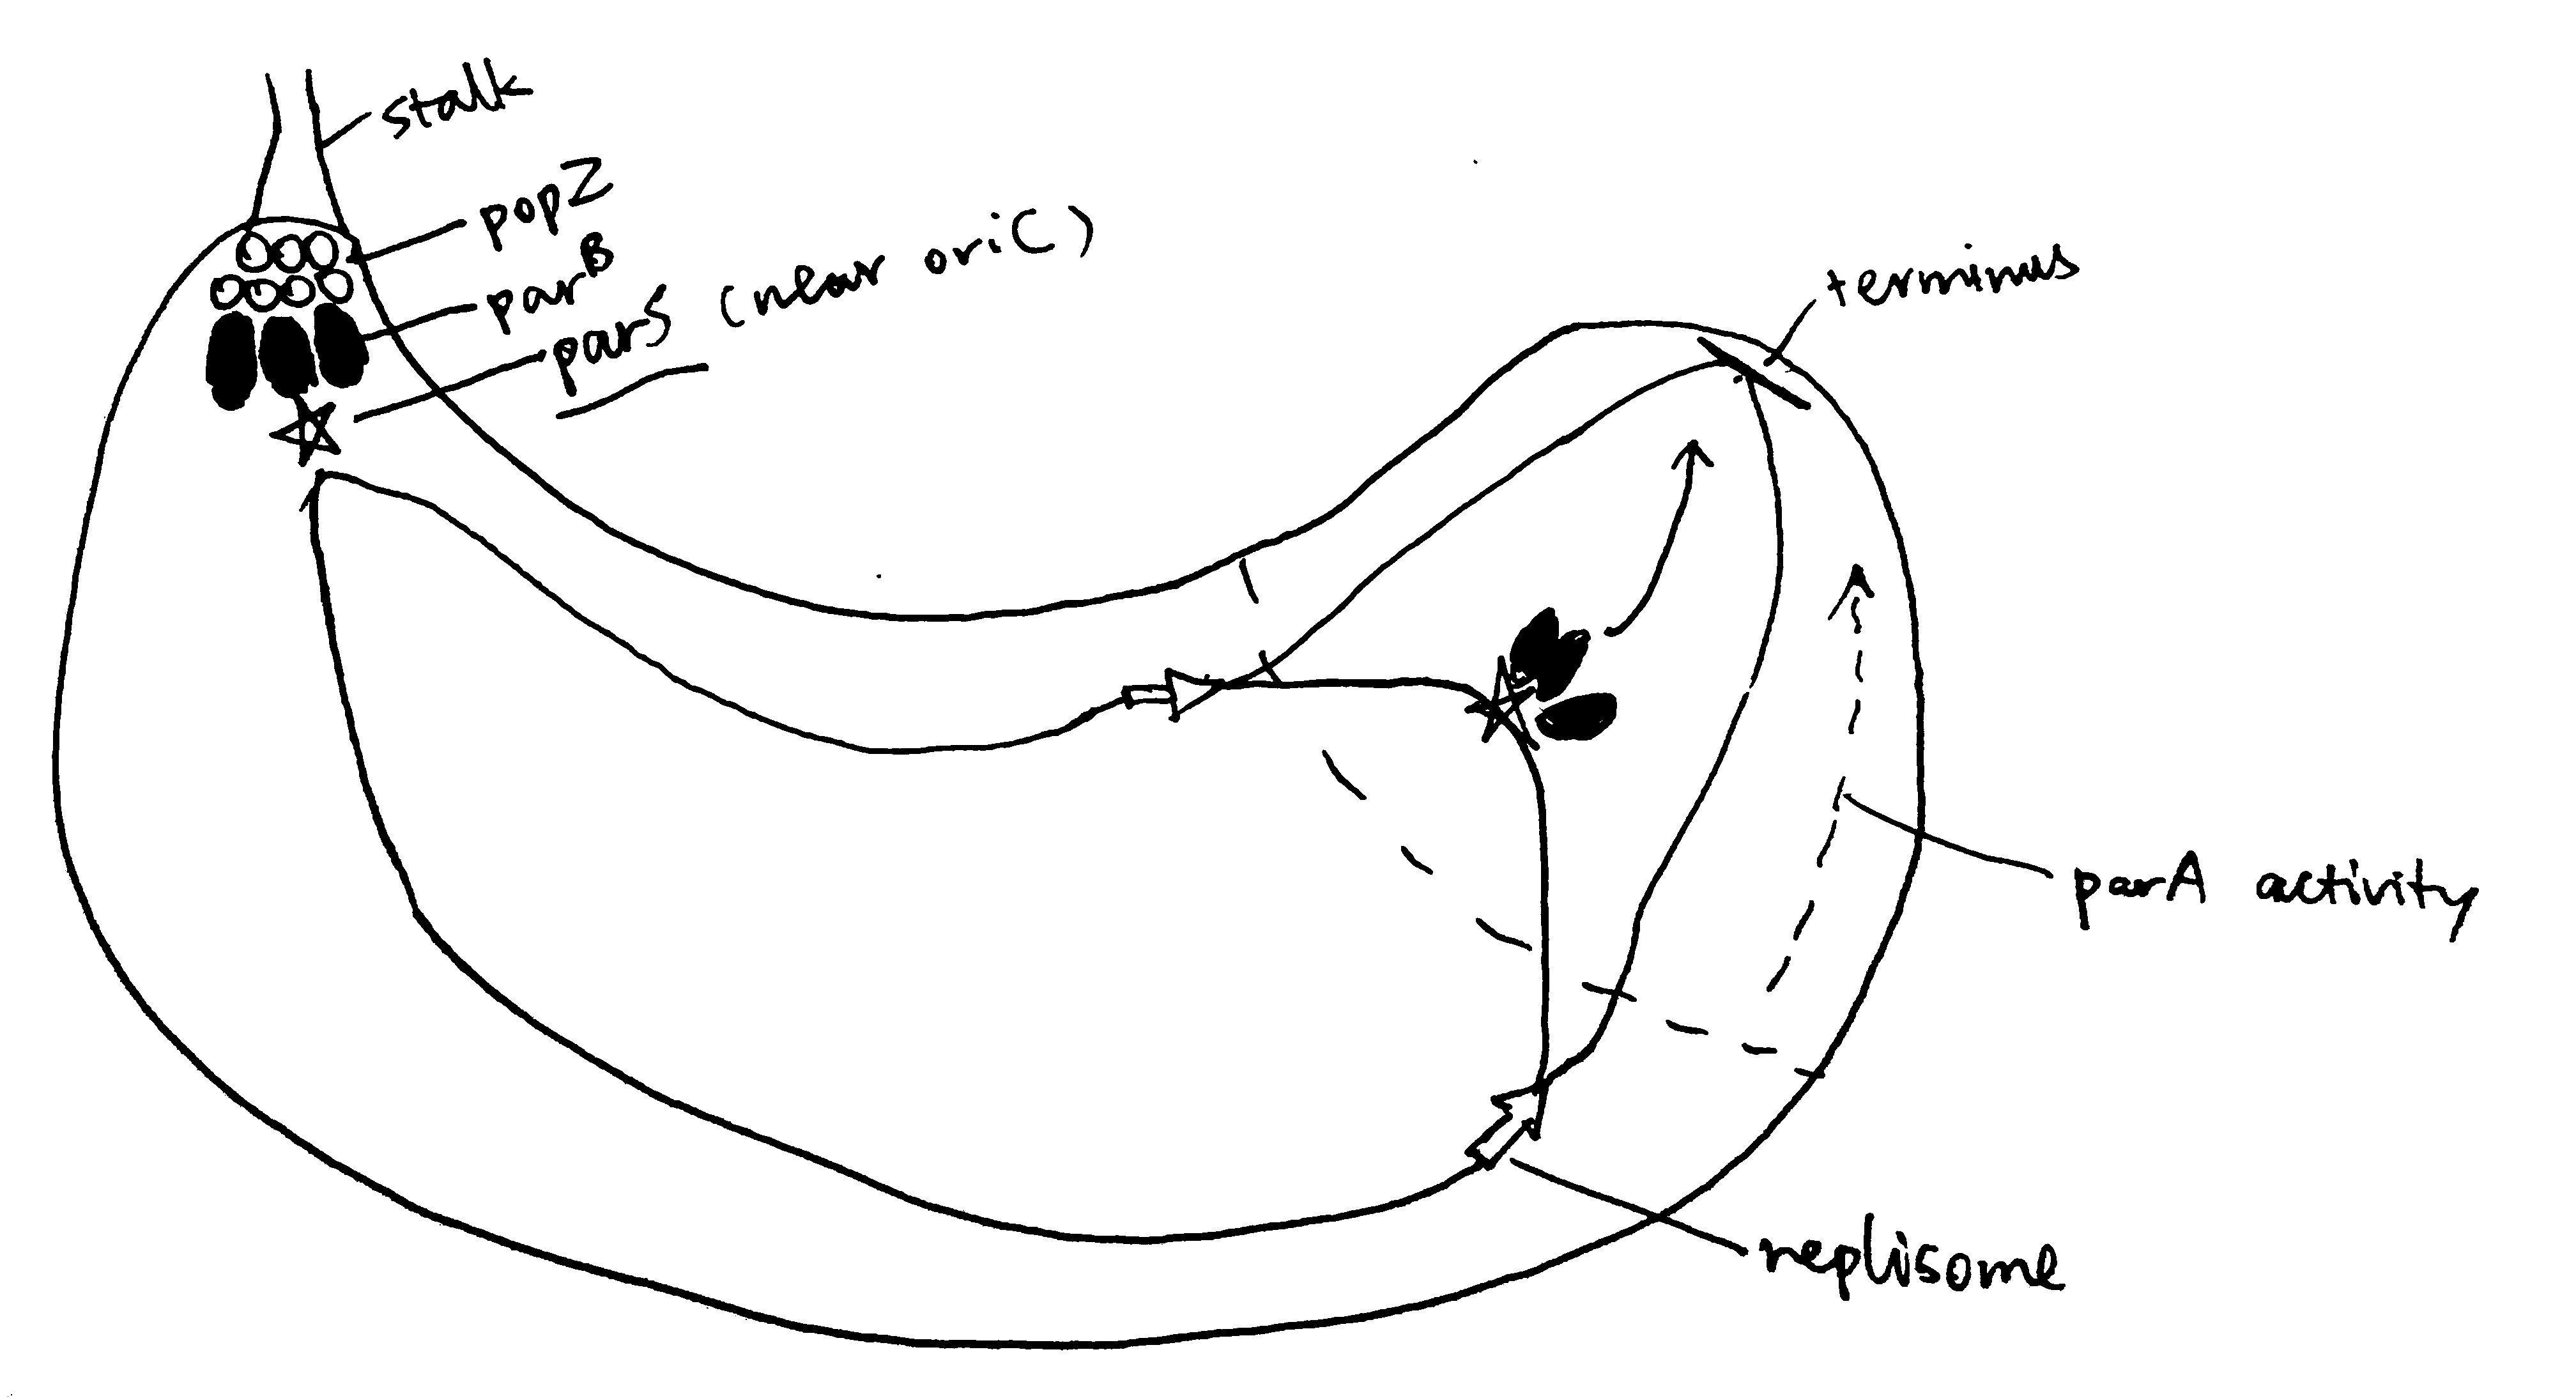 stalk
popZ
parB
parS (near oriC)
terminus
parA activity
replisome